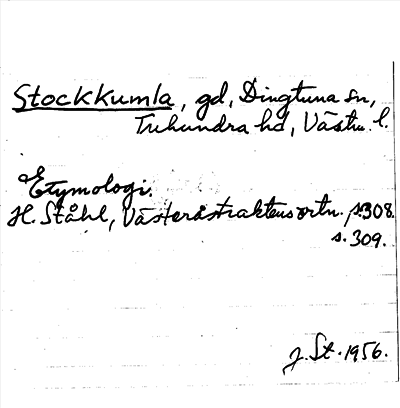 Stockkumla, gd, Dingtuna sn,
Tuhundra hd, Västm. l.
Etymologi.
H. Ståhl, Västeråstraktens ortn. s. 308.
s. 309.
J. St. 1956.